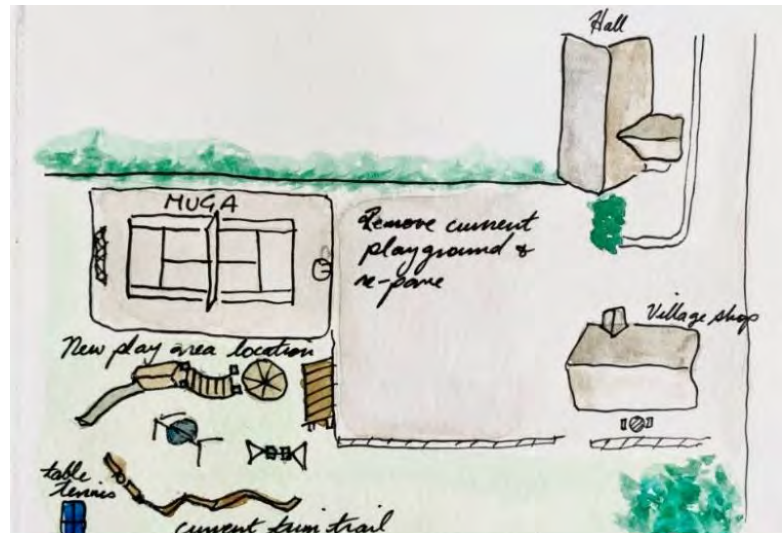 Hall
MUGA
Remove current
playground &
re-pave
Village shop
New play area location
table
tennis
current trim trail